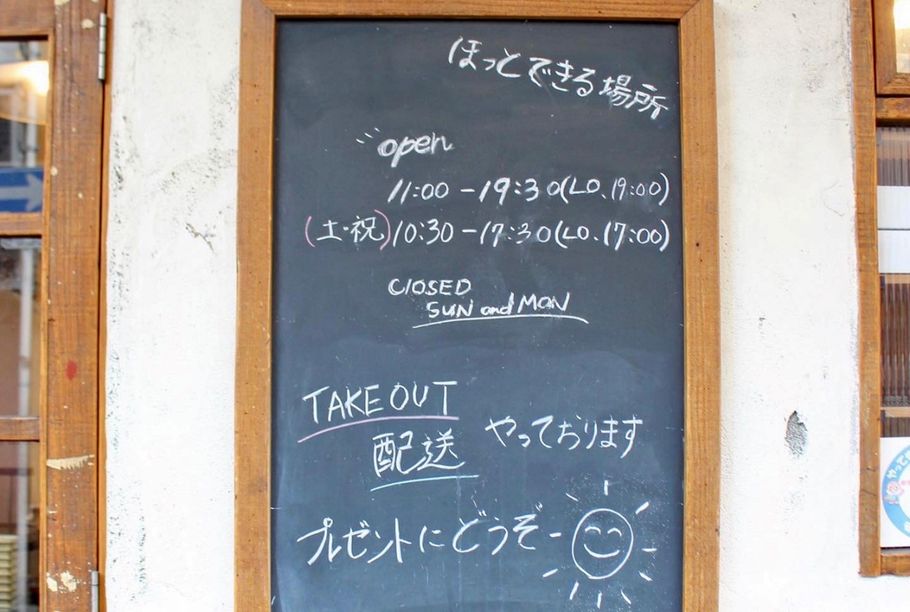 ほっとできる場所
open
11:00 - 19:30(LO、19:00)
(土・祝)10:30 - 17:30(LO、17:00)
CLOSED
SUN and MON
TAKE OUT
配送 やっております
プレゼントにどうぞ